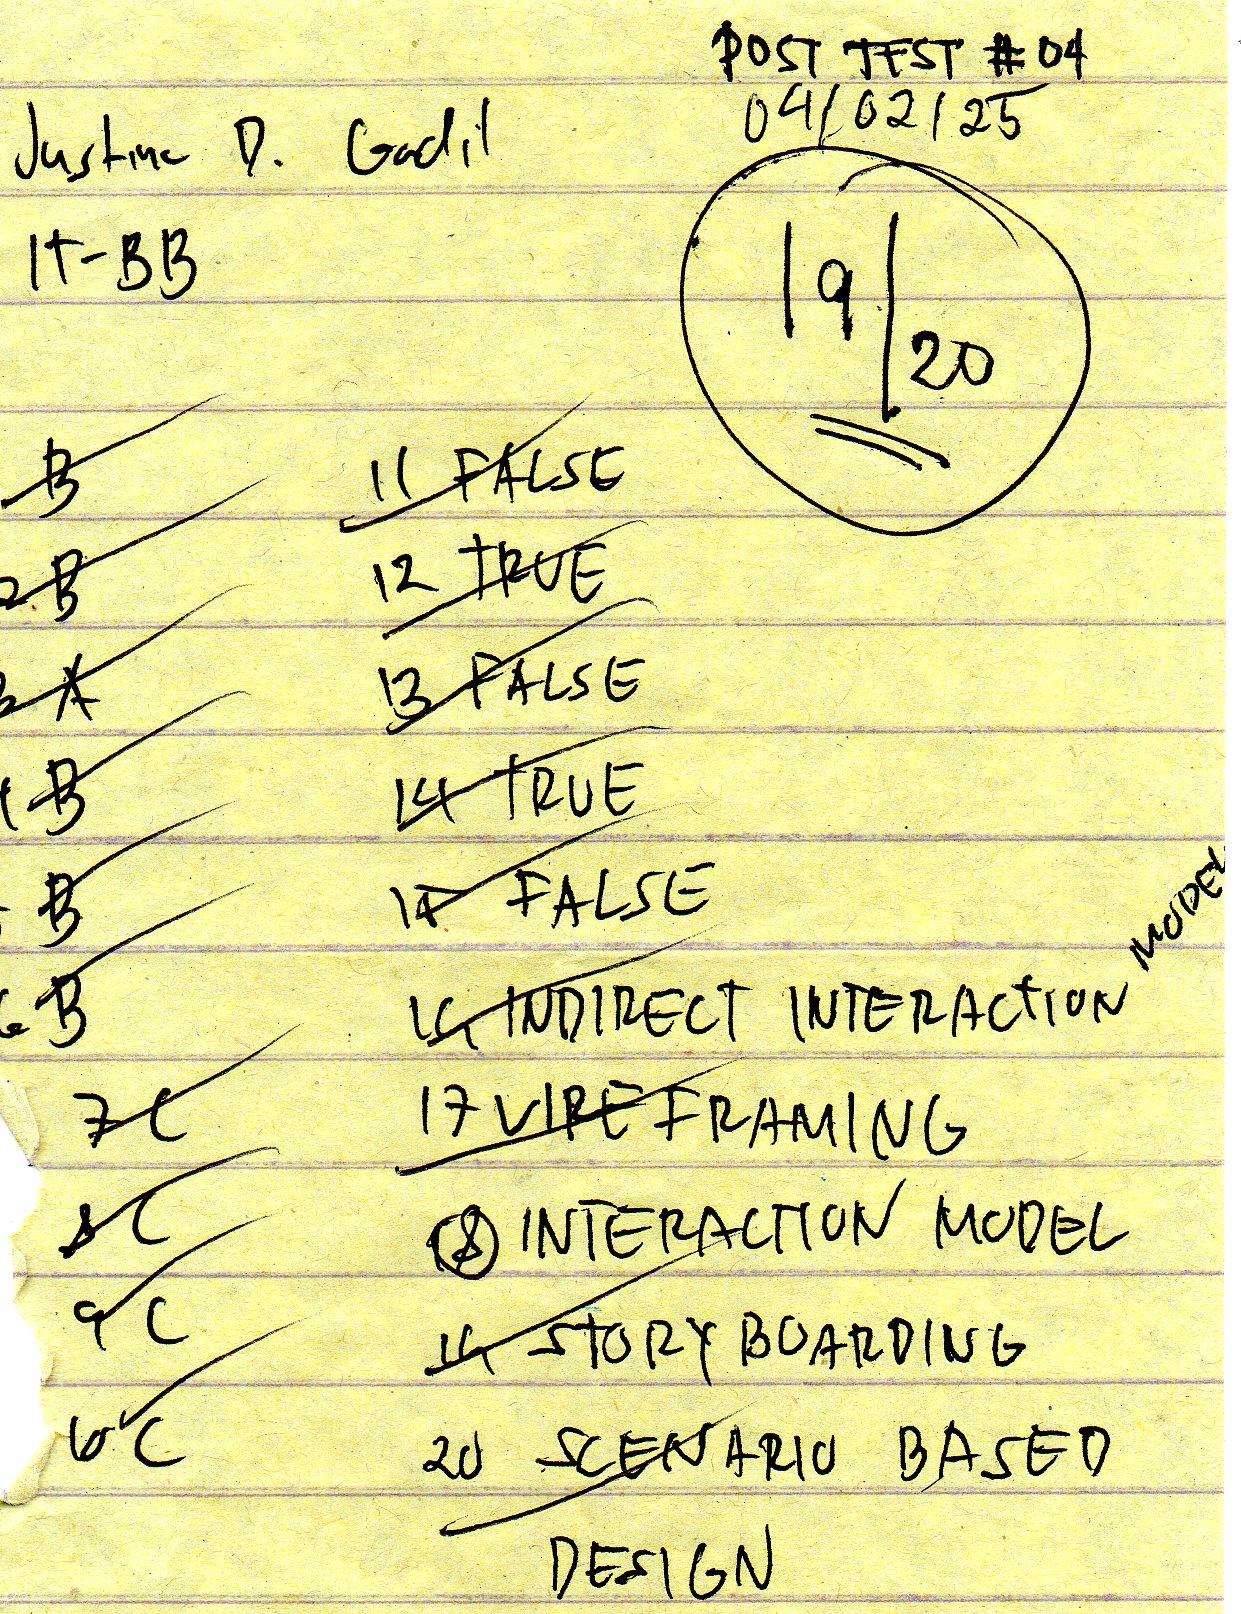 POST TEST #04
04/02/25
Justine D. Gadil
IT-BB
19/20
B
2 B
3 A
4 B
B
6 B
7 C
8 C
9 C
10 C
11 FALSE
12 TRUE
13 FALSE
14 TRUE
15 FALSE
16 INDIRECT INTERACTION MODEL
17 WIREFRAMING
18 INTERACTION MODEL
19 STORYBOARDING
20 SCENARIO BASED
DESIGN